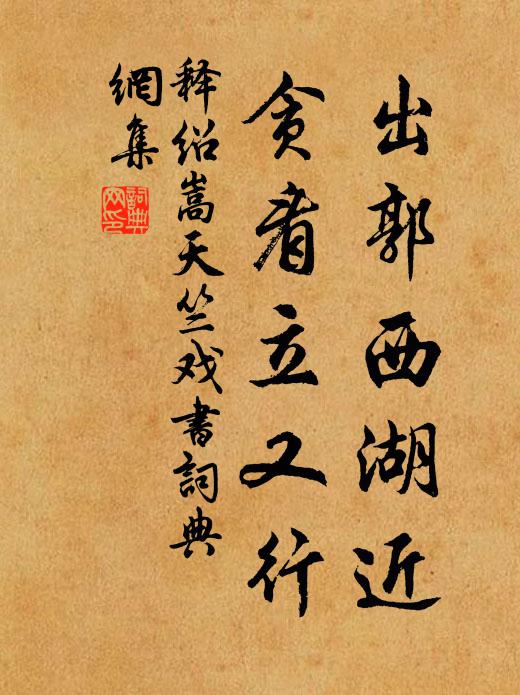 出郭西湖近
贪看立又行
释绍嵩天竺戏书詞典
網集
詞典
网印